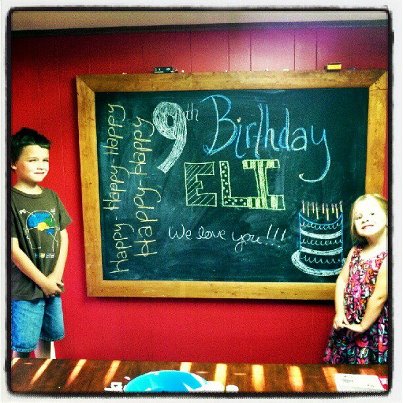 Happy-Happy-Happy
Happy-Happy
9th
Birthday
ELI
We love you!!!